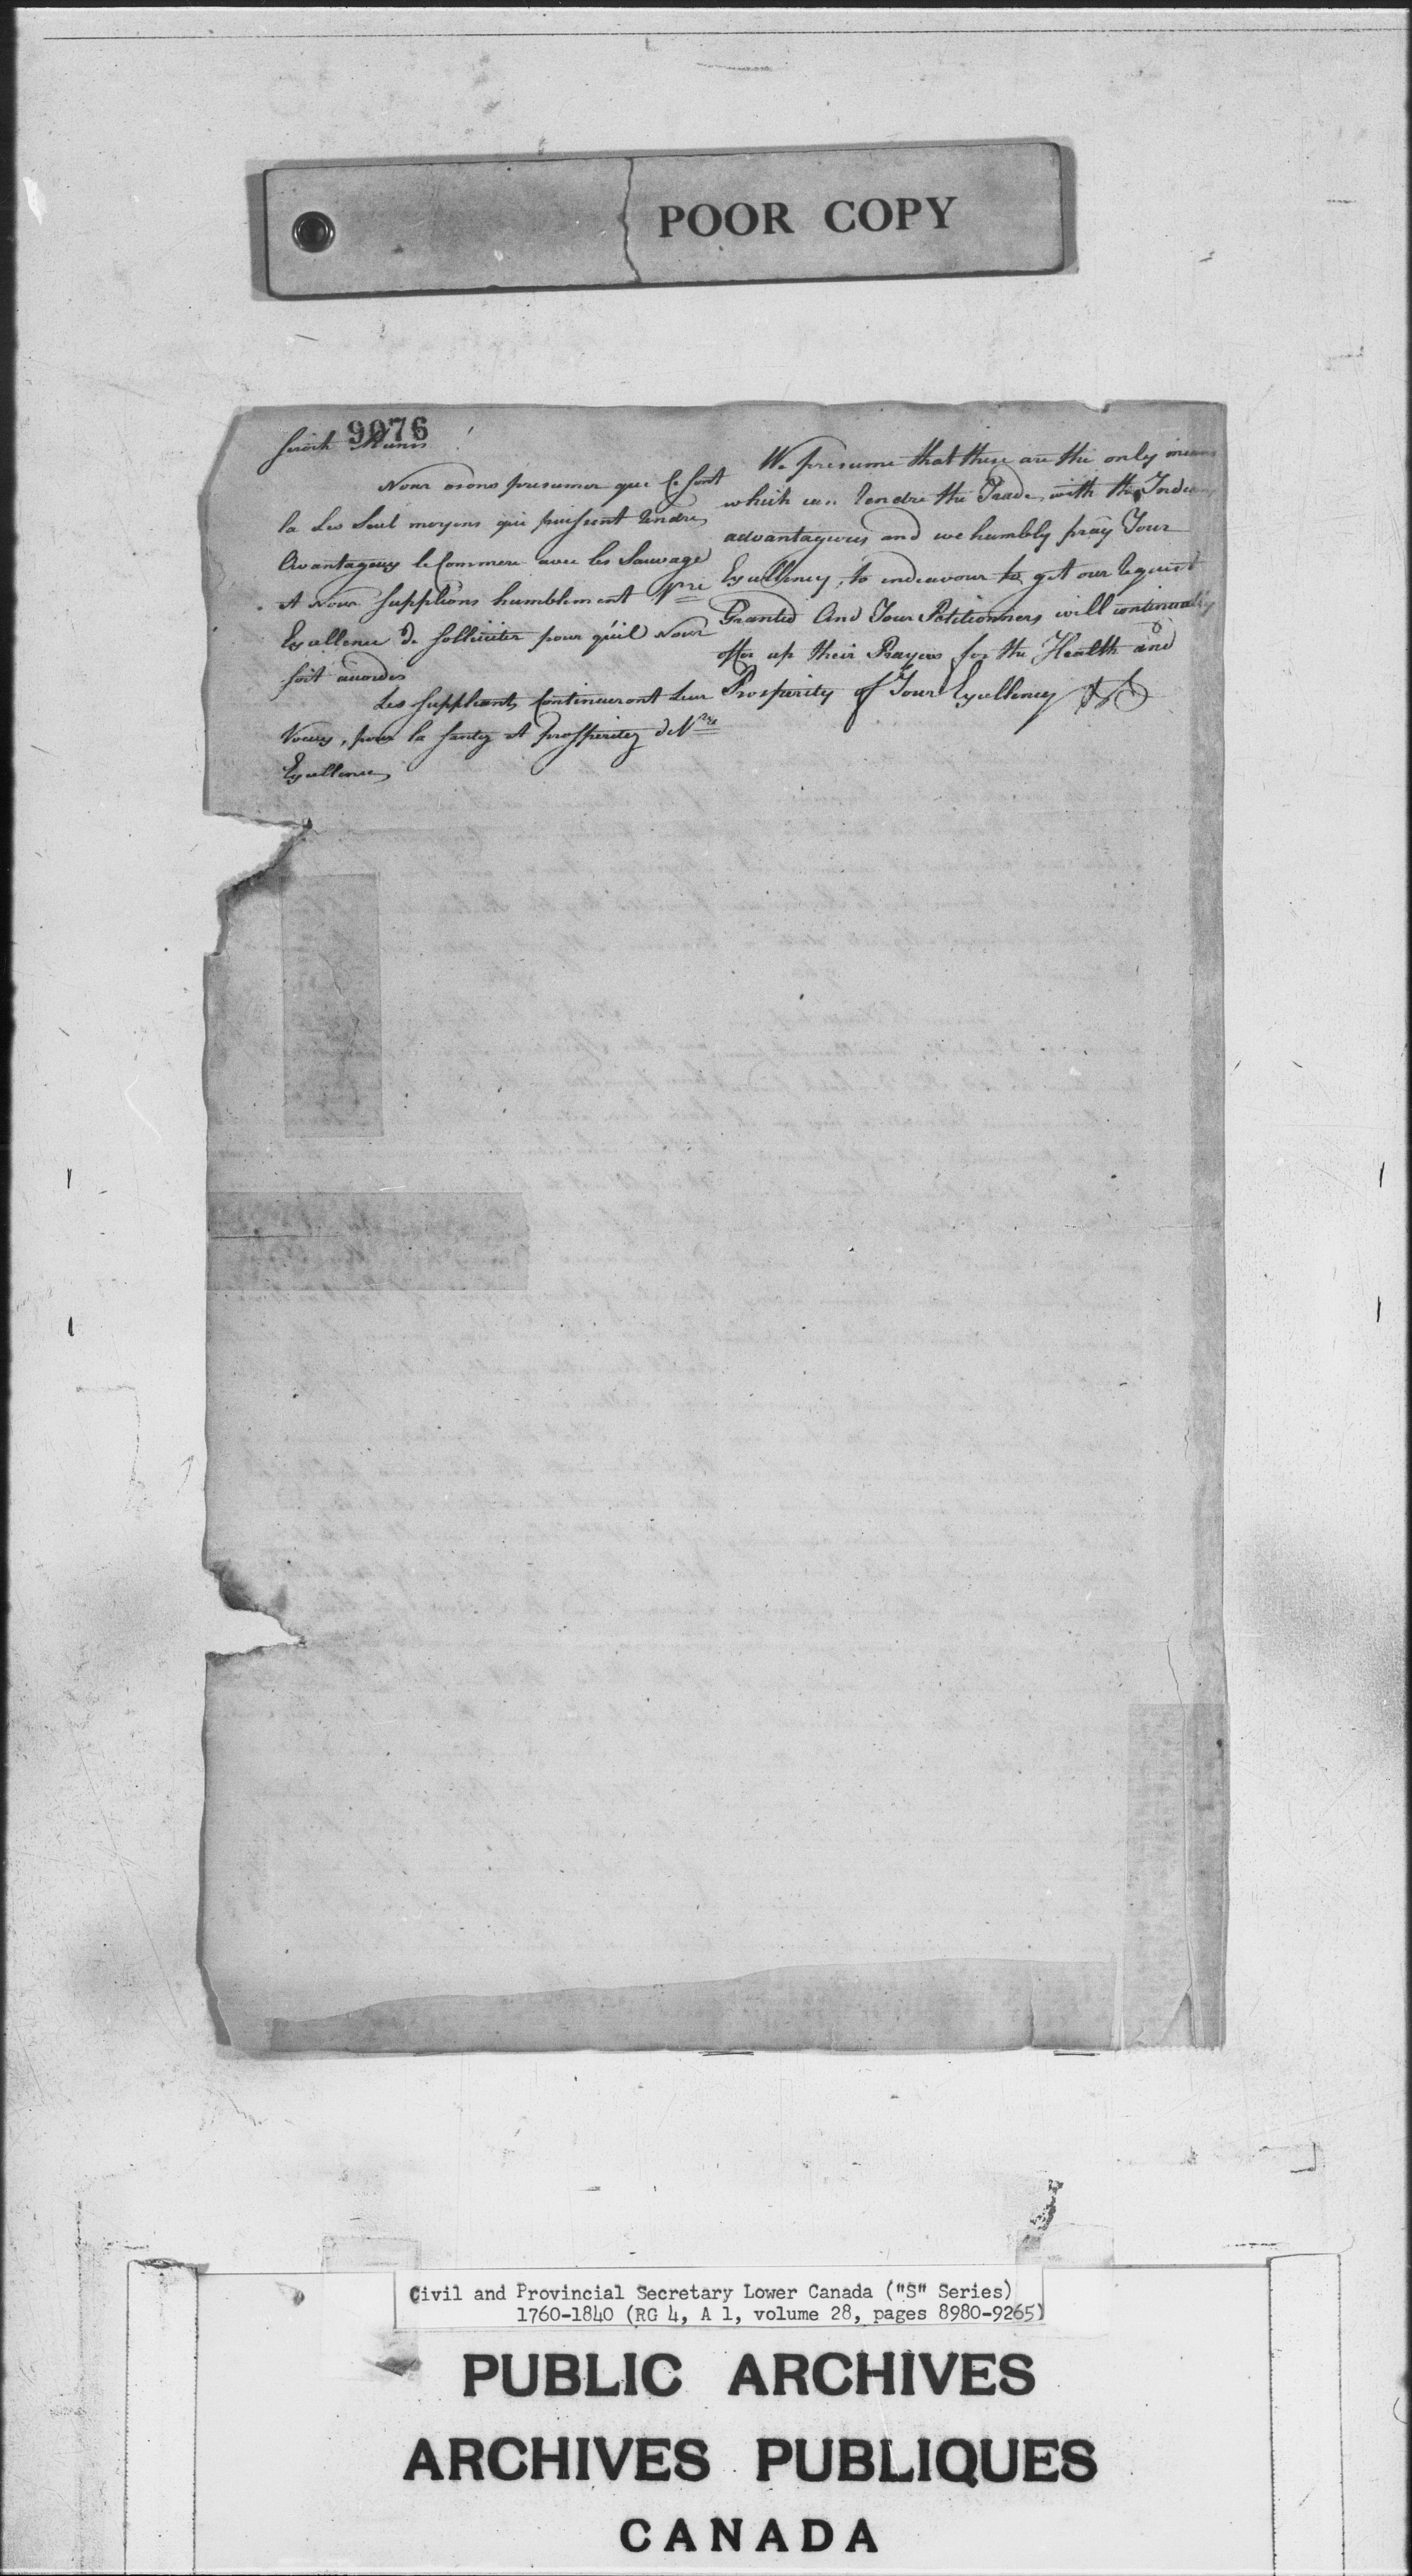 POOR COPY
9076
seroit Munis
Nous osons presumer que Ce sont
la Les Seul moyens qui puissent Rendre
Avantageux le Commerce avec les Sauvage
et Nous supplions humblement Vre
Excellence de solliciter pour qu'il Nous
soit accordés
Les suppliants Continueront Leur
Voeux, pour la santez et prosperitez de Vre
Excellence
We presume that these are the only means
which can Rendre the Trade with the Indians
advantageous and we humbly pray Your
Excellency, to endeavour to get our Request
Granted And Your Petitionners will continually
offer up their Prayers for the Health and
Prosperity of Your Excellency
Civil and Provincial Secretary Lower Canada ("S" Series)
1760-1840 (RG 4, A 1, volume 28, pages 8980-9265)
PUBLIC ARCHIVES
ARCHIVES PUBLIQUES
CANADA